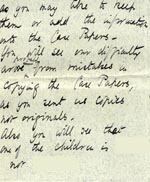 as you may like to keep
them or add the information
onto the Case Papers.
You will see our difficulty
arose from mistakes in
copying the Case Papers,
as you sent us copies
not originals.
Also you will see that
one of the children is
not